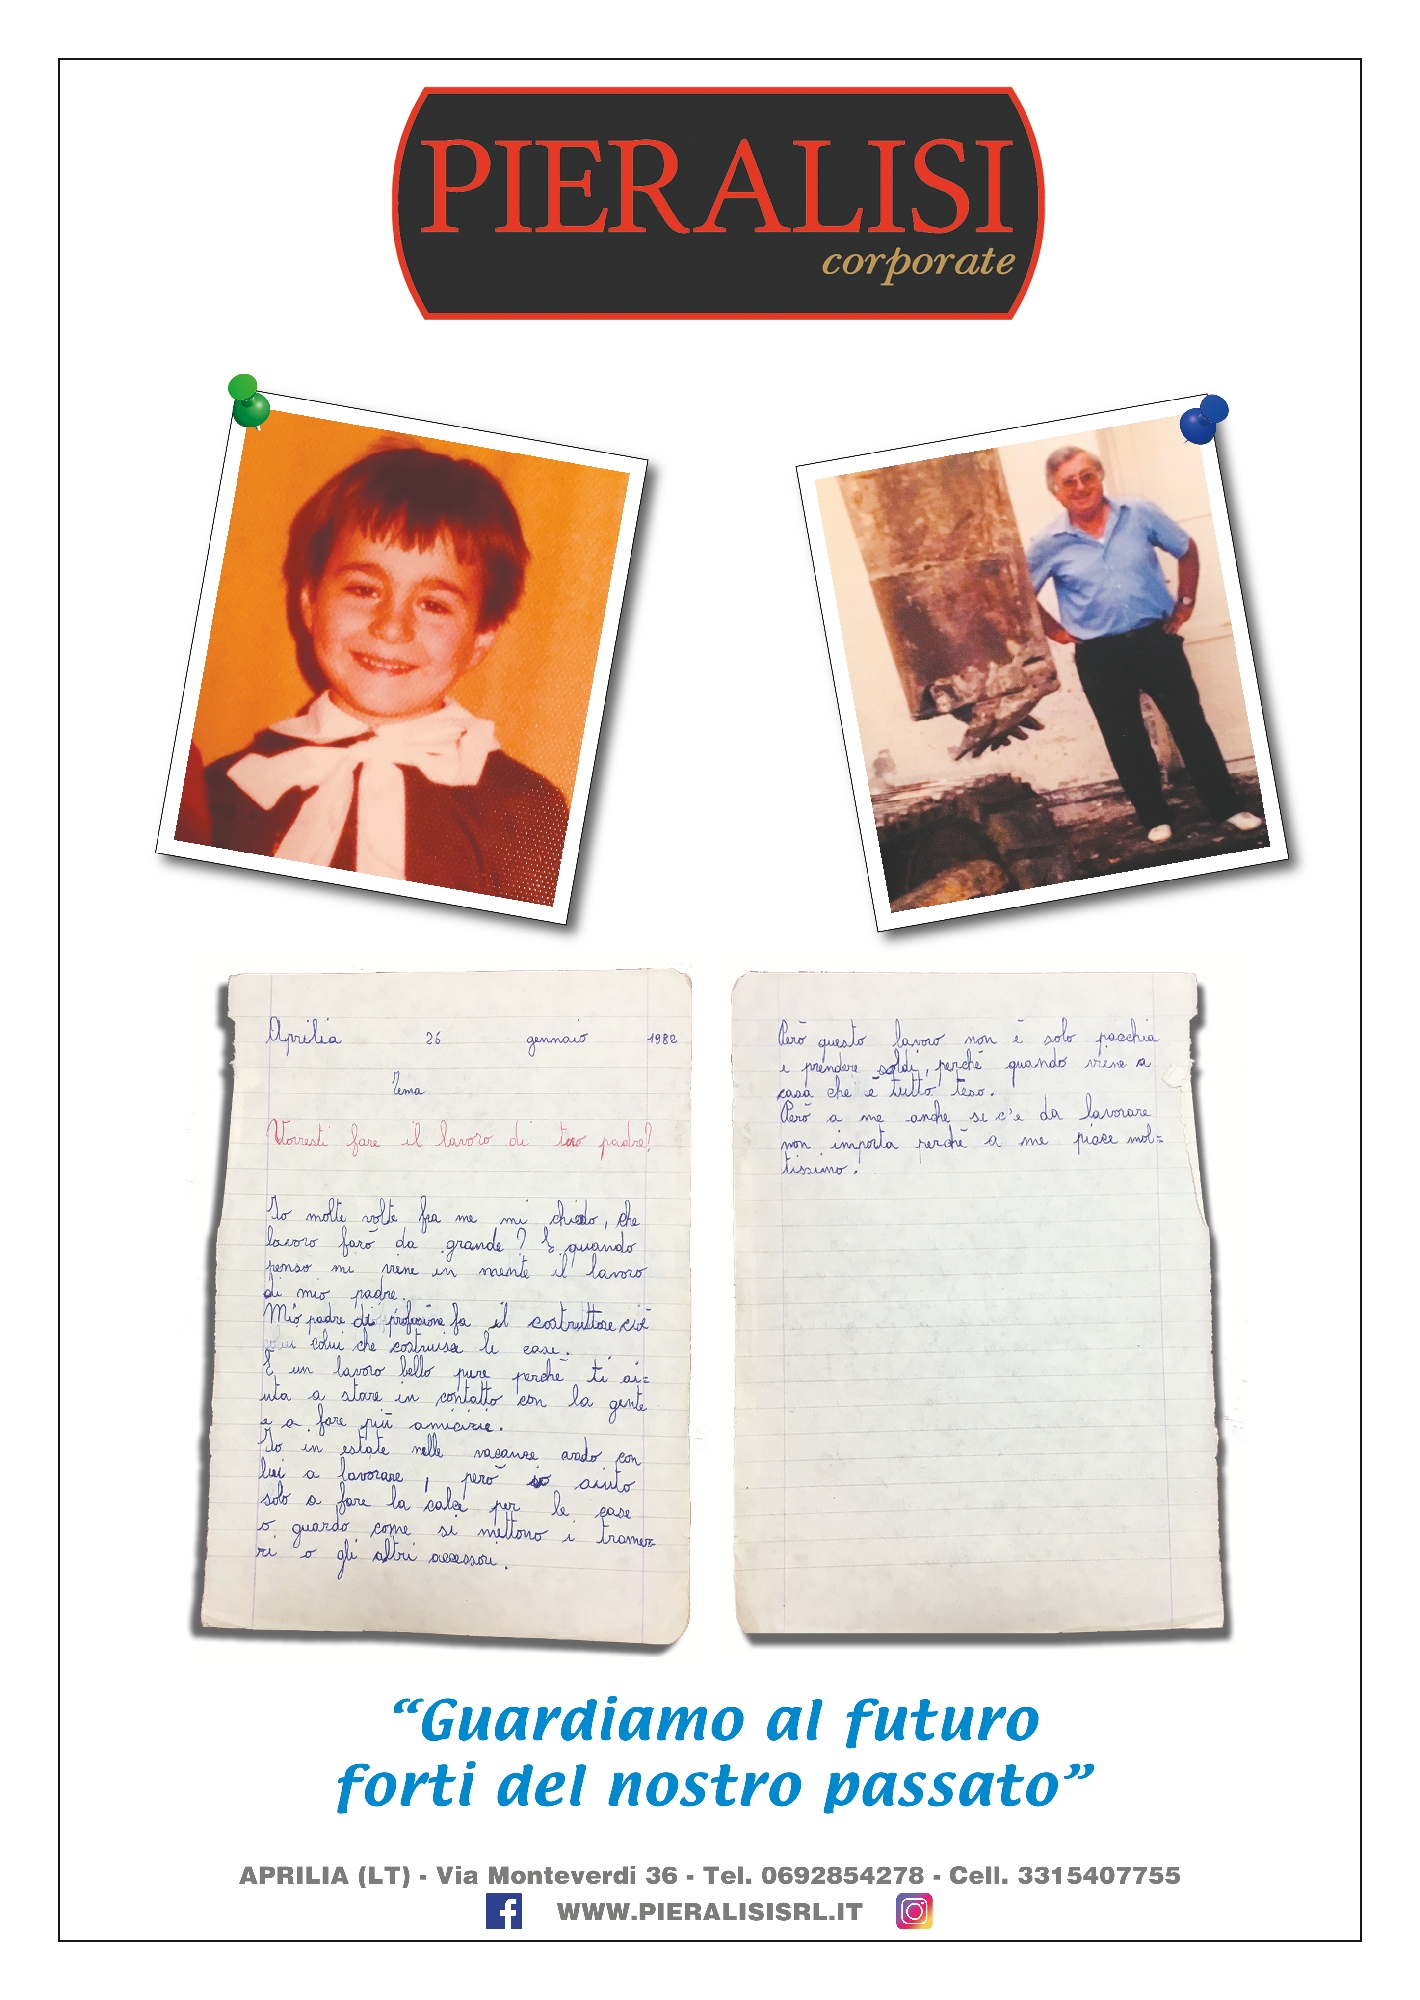 PIERALISI
corporate
Aprilia 26 gennaio 1982
Tema
Vorresti fare il lavoro di tuo padre?
Io molte volte fra me mi chiedo, che
lavoro farò da grande? E quando
penso mi viene in mente il lavoro
di mio padre.
Mio padre di professione fa il costruttore cioè
colui che costruisce le case.
È un lavoro bello pure perchè ti ai=
uta a stare in contatto con la gente
e a fare più amicizie.
Io in estate nelle vacanze vado con
lui a lavorare, però io aiuto
solo a fare la calce per le case
o guardo come si mettono i tramez=
zi o gli altri accessori.
Però questo lavoro non è solo pacchia
e prendere soldi, perchè quando viene a
casa che è tutto teso.
Però a me anche se c'e da lavorare
non importa perchè a me piace mol=
tissimo.
“Guardiamo al futuro
forti del nostro passato”
APRILIA (LT) - Via Monteverdi 36 - Tel. 0692854278 - Cell. 3315407755
WWW.PIERALISISRL.IT